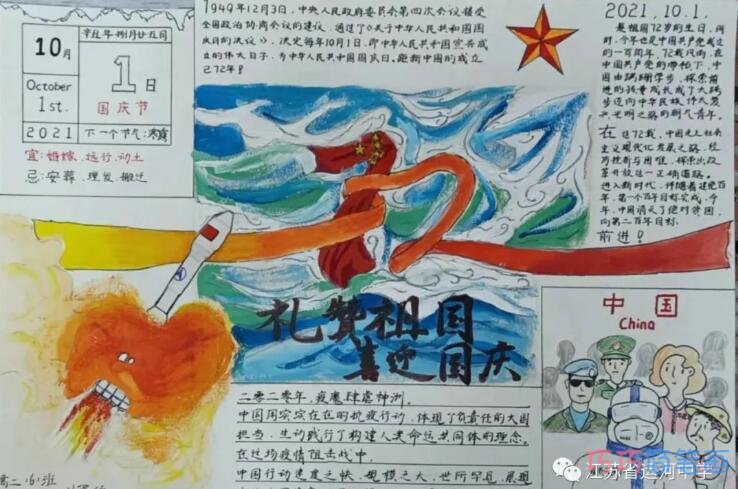 10月
October
1st.
2021
辛丑年·捌月廿五日
1日
国庆节
下一个节气:寒露
宜:婚嫁、远行、动土
忌:安葬、理发、搬迁
1949年12月3日,中央人民政府委员会第四次会议接受
全国政治协商会议的建议,通过了《关于中华人民共和国国
庆日的决议》,决定每年10月1日,即中华人民共和国宣告成
立的伟大日子,为中华人民共和国国庆日,距新中国的成立
已72年!
2021.10.1.
是祖国72岁的生日,同
时,今年也是中国共产党成立
的一百周年,72载风雨,在
中国共产党的带领下,中
国由蹒跚学步,探索前
进的孩童成长成了大踏
步迈向中华民族伟大复
兴光明之路的朝气青年。
在这72载,中国走上社会
主义现代化发展之路,经
历挫折与困难,探索出改
革开放这一正确道路。
进入新时代,伴随着建党百
年,第一个百年目标实成,今
年,中国消灭了绝对贫困,
向第二百年目标
前进!
礼赞祖国
喜迎国庆
中国
China
二零二零年,疫魔肆虐神洲。
中国用实实在在的抗疫行动,体现了负责任的大国
担当,生动践行了构建人类命运共同体的理念。
在这场疫情阻击战中,
中国行动速度之快、规模之大,世所罕见,展现
高二(6)班
江苏省运河中学